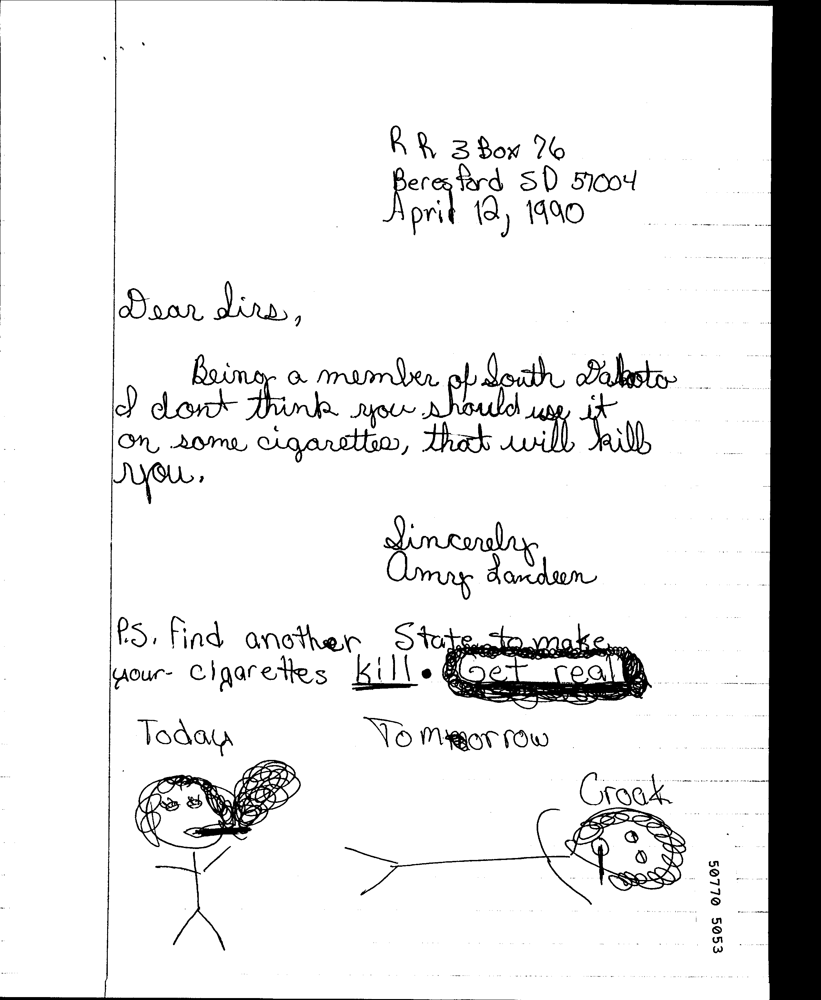 R R 3 Box 76
Beresford SD 57004
April 12, 1990
Dear Sirs,
Being a member of South Dakota
I dont think you should use it
on some cigarettes, that will kill
you.
Sincerely
Amy Landeen
P.S. Find another State to make
your cigarettes kill. Get real
Today Tomorrow
Croak
50770 5053